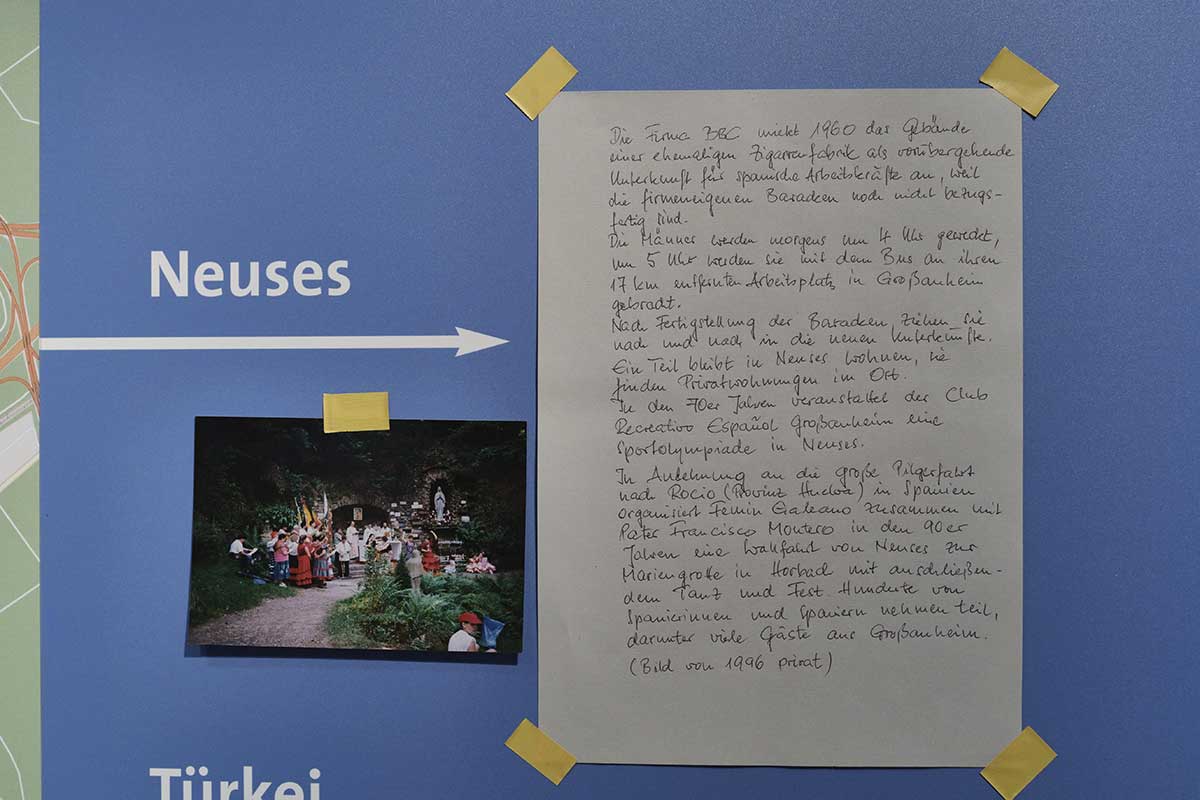 Neuses
Die Firma BBC mietet 1960 das Gebäude
einer ehemaligen Zigarrenfabrik als vorübergehende
Unterkunft für spanische Arbeitskräfte an, weil
die firmeneigenen Baracken noch nicht bezugs-
fertig sind.
Die Männer werden morgens um 4 Uhr geweckt,
um 5 Uhr werden sie mit dem Bus an ihren
17 km entfernten Arbeitsplatz in Großauheim
gebracht.
Nach Fertigstellung der Baracken ziehen sie
nach und nach in die neuen Unterkünfte.
Ein Teil bleibt in Neuses wohnen, sie
finden Privatwohnungen im Ort.
In den 70er Jahren veranstaltet der Club
Recreativo Español Großauheim eine
Sportolympiade in Neuses.
In Anlehnung an die große Pilgerfahrt
nach Rocio (Provinz Huelva) in Spanien
organisiert Fermin Galeano zusammen mit
Pater Francisco Montero in den 90er
Jahren eine Wallfahrt von Neuses zur
Mariengrotte in Horbach mit anschließen-
dem Tanz und Fest. Hunderte von
Spanierinnen und Spaniern nehmen teil,
darunter viele Gäste aus Großauheim.
(Bild von 1996 privat)
Türkei